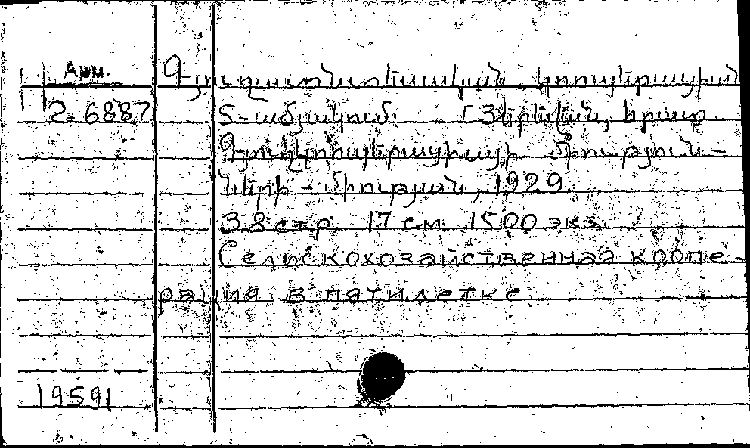 Арм.
Գյուղատնտեսական կոոպերացիան
2-6887
5-ամյակում. [Յերեվան, հրատ.
Գյուղկոոպերացիայի միություն-
ների միության, 1929
38 стр 17 см. 1500 экз.
Сельскохозяйственная коопе-
рация в пятилетке
19591